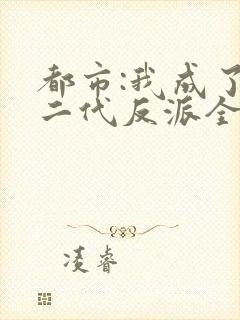 都市:我成了
二代反派全
凌睿